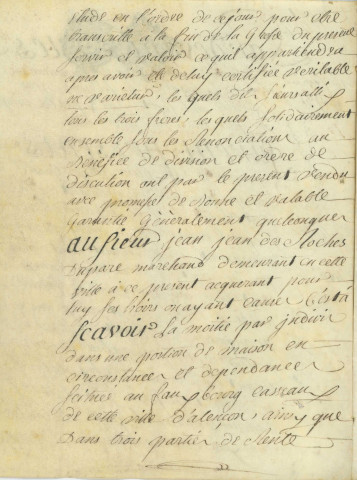 etude en l'ordre de ce jour pour etre
transcritte a la fin de la grosse du present
servir et valoir ce quil appartiendra
apres avoir été de luy certifiée veritable
ne varietur, les quels dit sieurs
tous les trois freres, les quels solidairement
ensemble sous les renonciations au
benefice de division et ordre de
discution ont par le present vendu
avec promesse de bonne et valable
garantie generalement quelconque
au sieur jean jean des Roches
marchand demeurant en cette
ville a ce present acquereur pour
luy ses hoirs ou ayant cause C'est a
scavoir la moitié par indivi
dans une portion de maison en
circonstances et dependances
scitues au faubourg
de cette ville d'alencon, ainsy que
dans trois parties de rente